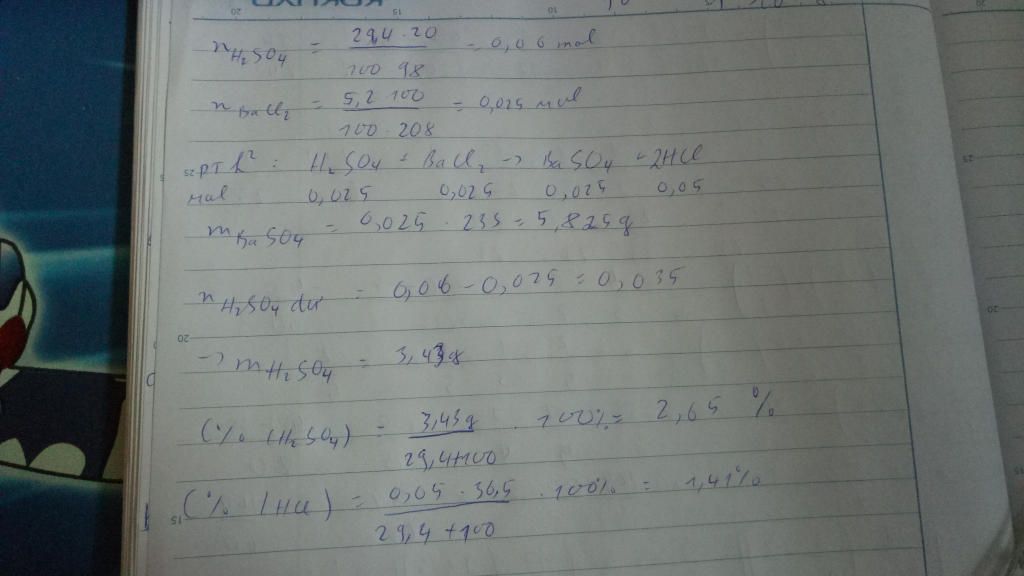 n H₂SO₄ = 29,4 · 20 / 100 98 = 0,06 mol
n BaCl₂ = 5,2 100 / 100 · 208 = 0,025 mol
PT h² : H₂SO₄ + BaCl₂ -> BaSO₄ + 2HCl
mol 0,025 0,025 0,025 0,05
m BaSO₄ = 0,025 · 233 = 5,825g
n H₂SO₄ dư = 0,06 - 0,025 = 0,035
-> m H₂SO₄ = 3,43g
C% (H₂SO₄) = 3,43g / 29,4+100 · 100% = 2,65 %
C% (HCl) = 0,05 · 36,5 / 29,4 + 100 · 100% = 1,41%